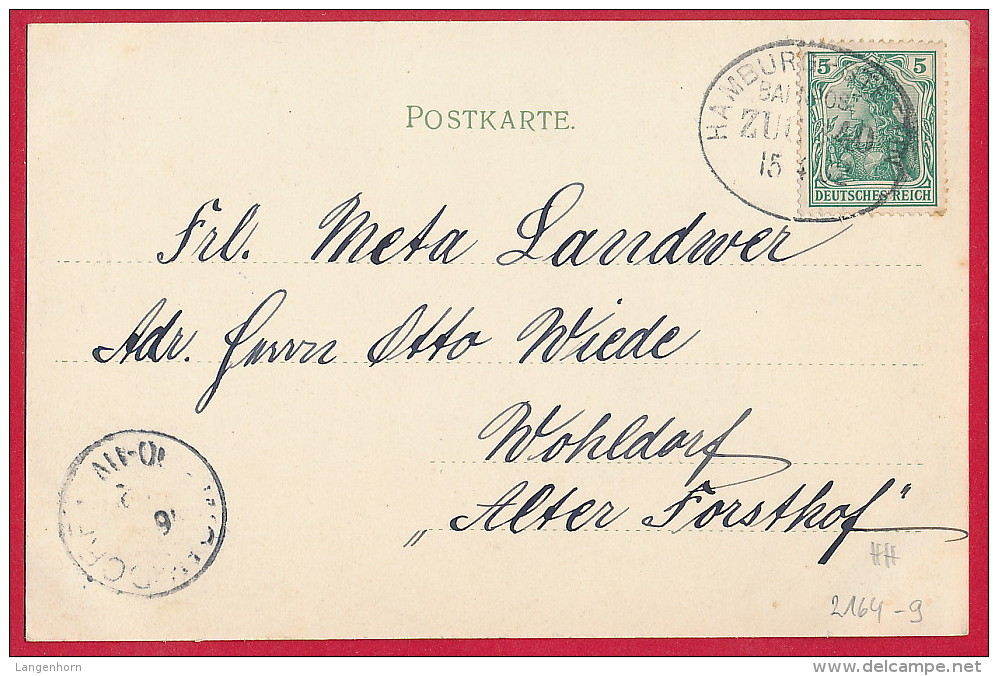 POSTKARTE.
HAMBURG
BAHNPOST
ZUG
15
5 5
DEUTSCHES REICH
Frl. Meta Landwer
Adr. Herrn Otto Wiede
Wohldorf
„Alter Forsthof“
HH
2164-9
Langenhorn
delcampe.net